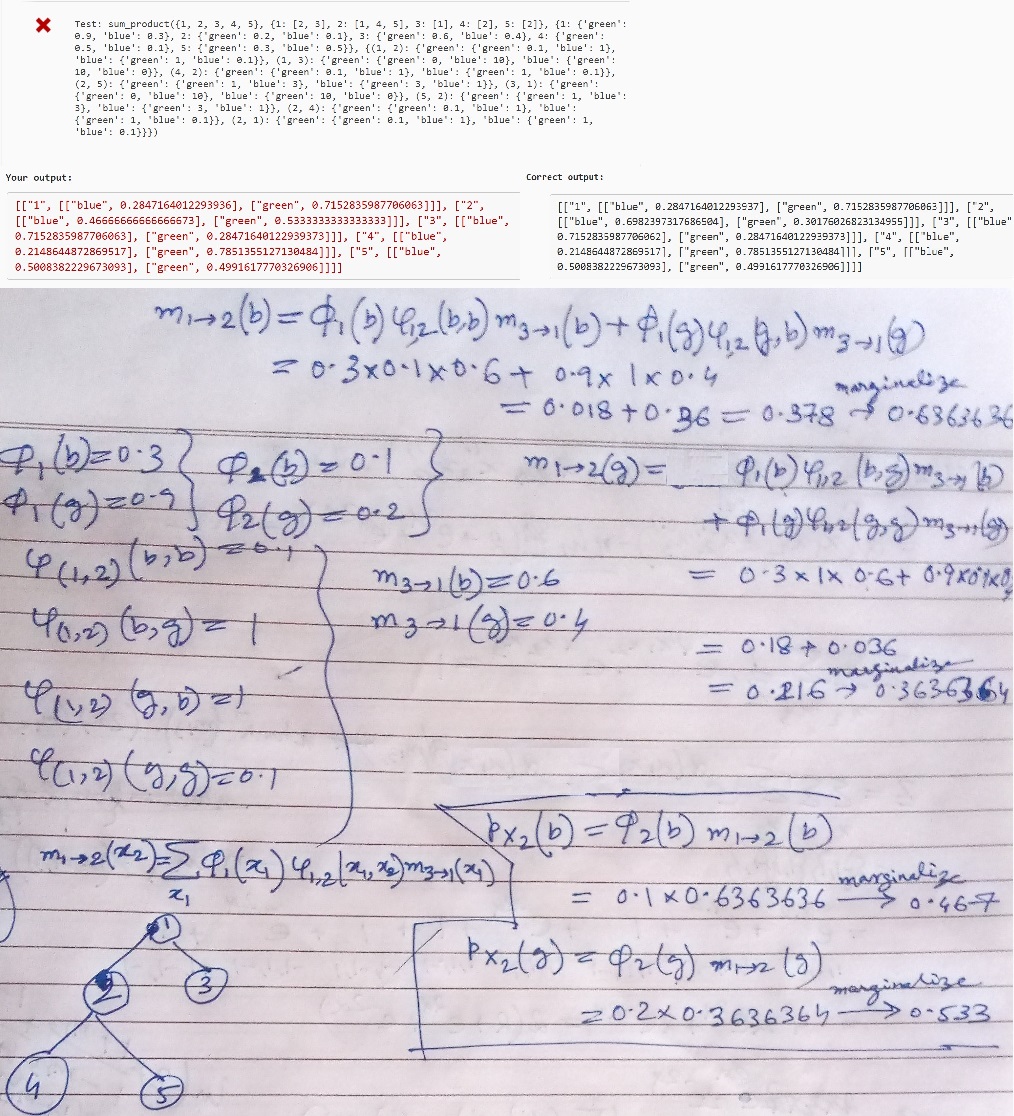 Test: sum_product({1, 2, 3, 4, 5}, {1: [2, 3], 2: [1, 4, 5], 3: [1], 4: [2], 5: [2]}, {1: {'green':
0.9, 'blue': 0.3}, 2: {'green': 0.2, 'blue': 0.1}, 3: {'green': 0.6, 'blue': 0.4}, 4: {'green':
0.5, 'blue': 0.1}, 5: {'green': 0.3, 'blue': 0.5}}, {(1, 2): {'green': {'green': 0.1, 'blue': 1},
'blue': {'green': 1, 'blue': 0.1}}, (1, 3): {'green': {'green': 0, 'blue': 10}, 'blue': {'green':
10, 'blue': 0}}, (4, 2): {'green': {'green': 0.1, 'blue': 1}, 'blue': {'green': 1, 'blue': 0.1}},
(2, 5): {'green': {'green': 1, 'blue': 3}, 'blue': {'green': 3, 'blue': 1}}, (3, 1): {'green':
{'green': 0, 'blue': 10}, 'blue': {'green': 10, 'blue': 0}}, (5, 2): {'green': {'green': 1, 'blue':
3}, 'blue': {'green': 3, 'blue': 1}}, (2, 4): {'green': {'green': 0.1, 'blue': 1}, 'blue':
{'green': 1, 'blue': 0.1}}, (2, 1): {'green': {'green': 0.1, 'blue': 1}, 'blue': {'green': 1,
'blue': 0.1}}})
Your output:
[["1", [["blue", 0.2847164012293936], ["green", 0.7152835987706063]]], ["2",
[["blue", 0.46666666666666673], ["green", 0.5333333333333333]]], ["3", [["blue",
0.7152835987706063], ["green", 0.28471640122939373]]], ["4", [["blue",
0.2148644872869517], ["green", 0.7851355127130484]]], ["5", [["blue",
0.5008382229673093], ["green", 0.4991617770326906]]]]
Correct output:
[["1", [["blue", 0.2847164012293937], ["green", 0.7152835987706063]]], ["2",
[["blue", 0.6982397317686504], ["green", 0.30176026823134955]]], ["3", [["blue"
0.7152835987706062], ["green", 0.28471640122939373]]], ["4", [["blue",
0.2148644872869517], ["green", 0.7851355127130484]]], ["5", [["blue",
0.5008382229673093], ["green", 0.4991617770326906]]]]
m₁→₂(b) = ϕ₁(b) φ₁,₂(b,b) m₃→₁(b) + ϕ₁(g) φ₁,₂(g,b) m₃→₁(g)
= 0.3×0.1×0.6 + 0.9×1×0.4
marginalize
= 0.018 + 0.36 = 0.378 → 0.6363636
ϕ₁(b) = 0.3
ϕ₁(g) = 0.9
ϕ₂(b) = 0.1
ϕ₂(g) = 0.2
φ(1,2) (b,b) = 0.1
φ(1,2) (b,g) = 1
φ(1,2) (g,b) = 1
φ(1,2) (g,g) = 0.1
m₃→₁(b) = 0.6
m₃→₁(g) = 0.4
m₁→₂(g) = ϕ₁(b) φ₁,₂(b,g) m₃→₁(b)
+ ϕ₁(g) φ₁,₂(g,g) m₃→₁(g)
= 0.3×1×0.6 + 0.9×0.1×0.
= 0.18 + 0.036
marginalize
= 0.216 → 0.3636364
m₁→₂(x₂) = Σ ϕ₁(x₁) φ₁,₂(x₁,x₂) m₃→₁(x₁)
x₁
1
2
3
4
5
Px₂(b) = ϕ₂(b) m₁→₂(b)
marginalize
= 0.1×0.6363636 → 0.467
Px₂(g) = ϕ₂(g) m₁→₂(g)
marginalize
= 0.2×0.3636364 → 0.533